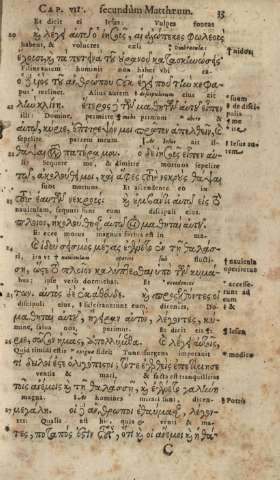 CAP. VIII. secundùm Matthæum. 33
Et dicit ei Iesus: Vulpes foveas
20 καὶ λέγει αὐτῷ ὁ ἰησοῦς, αἱ ἀλώπεκες φωλεοὺς
habent, & volucres cæli
ἔχουσι, καὶ τὰ πετεινὰ τοῦ οὐρανοῦ κατασκηνώσεις
Filius autem hominis non habet ubi ca-
ὁ δὲ υἱὸς τοῦ ἀνθρώπου οὐκ ἔχει ποῦ τὴν κεφα-
put reclinet. Alius autem discipulorum eius
21 λὴν κλίνῃ. ἕτερος δὲ τῶν μαθητῶν αὐτοῦ εἶπεν
illi: Domine, permitte mihi primùm abire &
αὐτῷ, κύριε, ἐπίτρεψόν μοι πρῶτον ἀπελθεῖν, καὶ
sepelire patrem meum.
22 θάψαι τὸν πατέρα μου. ὁ δὲ ἰησοῦς εἶπεν αὐ-
Sequere me, & dimitte mortuos sepelire
τῷ, ἀκολούθει μοι, καὶ ἄφες τοὺς νεκροὺς θάψαι
suos mortuos. Et ascendente eo in
23 τοὺς ἑαυτῶν νεκρούς. καὶ ἐμβάντι αὐτῷ εἰς τὸ
naviculam, sequuti sunt eum discipuli eius.
πλοῖον, ἠκολούθησαν αὐτῷ οἱ μαθηταὶ αὐτοῦ.
Et ecce motus magnus factus est in ma-
24 καὶ ἰδοὺ σεισμὸς μέγας ἐγένετο ἐν τῇ θαλάσ-
ri, ita ut navicula operiretur fluctibus
σῃ, ὥστε τὸ πλοῖον καλύπτεσθαι ὑπὸ τῶν κυμά-
ipse verò dormiebat. Et
25 των. αὐτὸς δὲ ἐκάθευδε. καὶ προσελθόντες οἱ
discipuli eius, & suscitaverunt eum, dicentes, Do-
μαθηταὶ αὐτοῦ, ἤγειραν αὐτὸν, λέγοντες, κύ-
mine, salva nos, perimus. Et dicit eis
26 ριε, σῶσον ἡμᾶς, ἀπολλύμεθα. καὶ λέγει αὐτοῖς,
Quid timidi estis exiguæ fidei? Tunc surgens imperavit
τί δειλοί ἐστε ὀλιγόπιστοι; τότε ἐγερθεὶς ἐπετίμησε
ventis & mari, & facta est tranquillitas
τοῖς ἀνέμοις καὶ τῇ θαλάσσῃ, καὶ ἐγένετο γαλήνη
magna. homines mirati sunt, dicen-
27 μεγάλη. οἱ δὲ ἄνθρωποι ἐθαύμασαν, λέγον-
tes: Qualis est hic, quia venti & ma-
τες, ποταπός ἐστιν οὗτος, ὅτι καὶ οἱ ἄνεμοι καὶ ἡ θά-
C